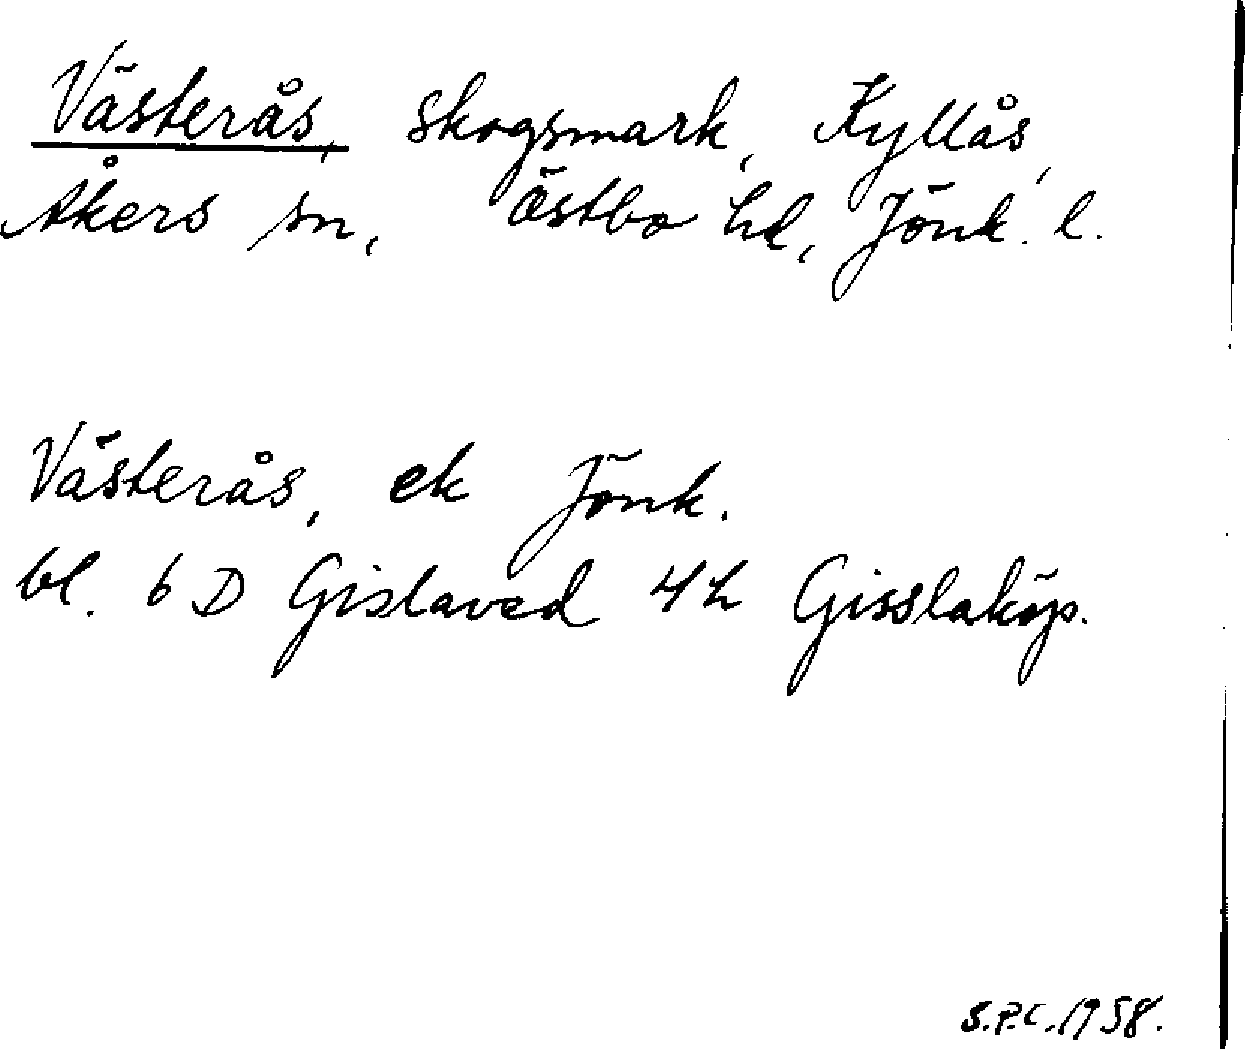 Västerås, skogsmark, Kyllås,
Åkers sn, Östbo hd, Jönk. l.
Västerås, ek Jönk.
bl. 6 D Gislaved 4h Gisslaköp.
S.P.C. 1958.